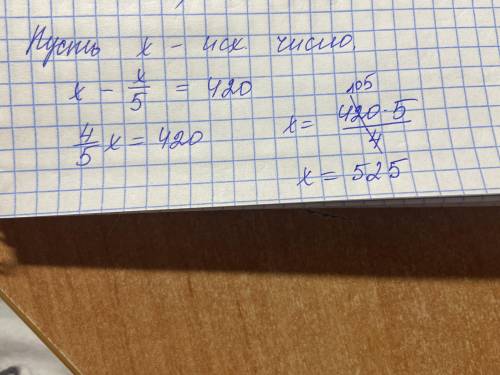 Пусть x - исх. число.
x - x/5 = 420
4/5 x = 420
x = 420·5/4
105
x = 525